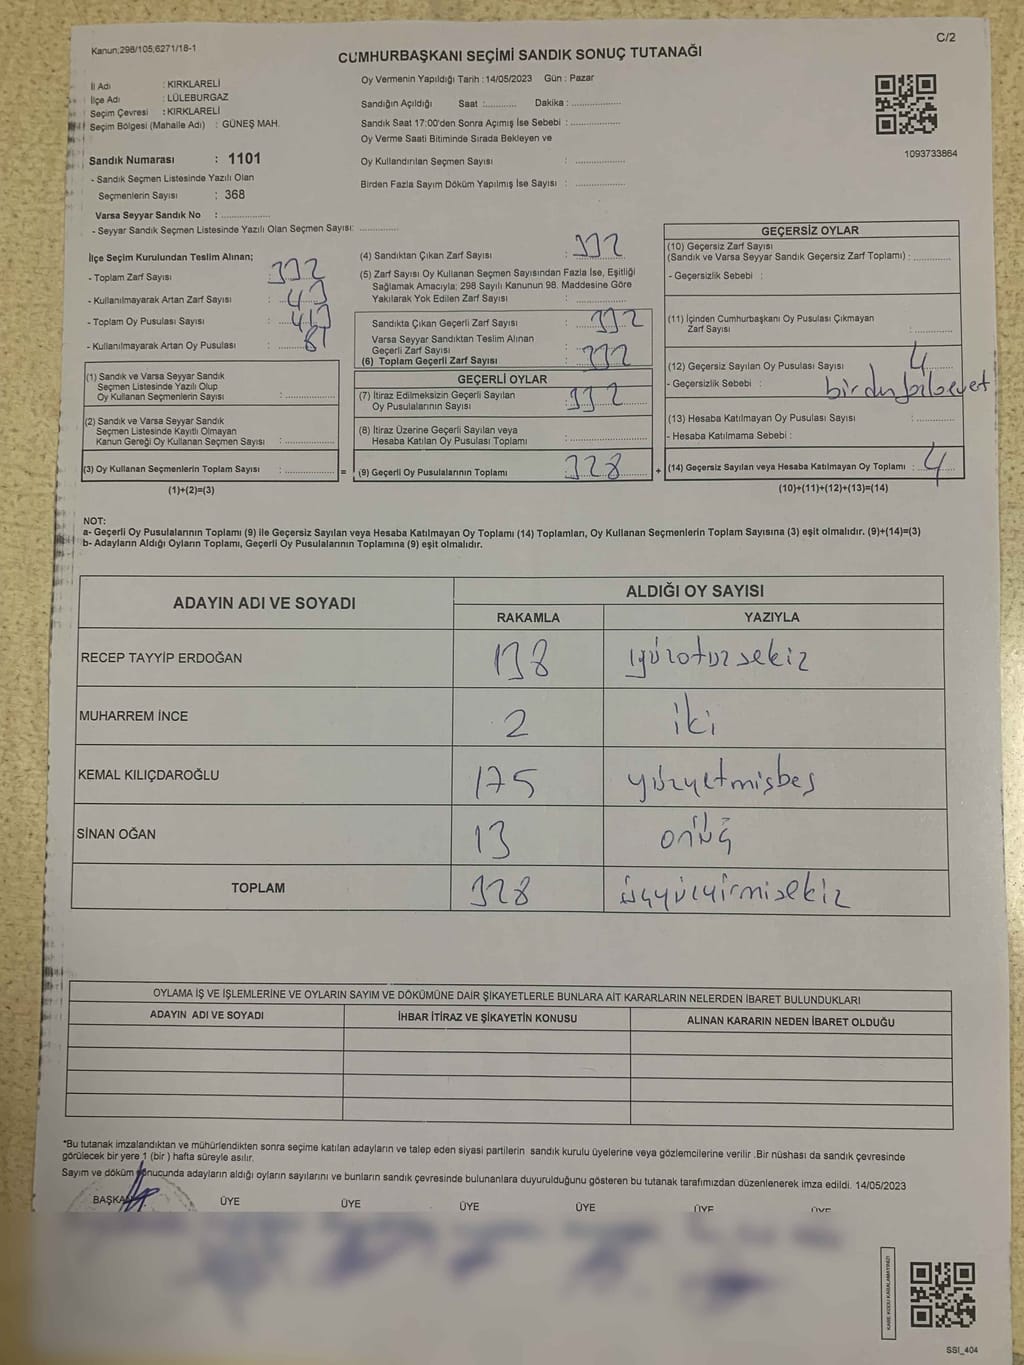 Kanun;298/105;6271/18-1
C/2
CUMHURBAŞKANI SEÇİMİ SANDIK SONUÇ TUTANAĞI
İl Adı : KIRKLARELİ
İlçe Adı : LÜLEBURGAZ
Seçim Çevresi : KIRKLARELİ
Seçim Bölgesi (Mahalle Adı) : GÜNEŞ MAH.
Sandık Numarası : 1101
- Sandık Seçmen Listesinde Yazılı Olan
Seçmenlerin Sayısı : 368
Varsa Seyyar Sandık No : ..................
- Seyyar Sandık Seçmen Listesinde Yazılı Olan Seçmen Sayısı: ..............
Oy Vermenin Yapıldığı Tarih : 14/05/2023 Gün : Pazar
Sandığın Açıldığı Saat :........... Dakika : ..................
Sandık Saat 17:00'den Sonra Açımış İse Sebebi : ..................
Oy Verme Saati Bitiminde Sırada Bekleyen ve
Oy Kullandırılan Seçmen Sayısı : ..................
Birden Fazla Sayım Döküm Yapılmış İse Sayısı : ..................
1093733864
İlçe Seçim Kurulundan Teslim Alınan;
- Toplam Zarf Sayısı : 332
- Kullanılmayarak Artan Zarf Sayısı : 43
- Toplam Oy Pusulası Sayısı : 413
- Kullanılmayarak Artan Oy Pusulası : 81
(1) Sandık ve Varsa Seyyar Sandık
Seçmen Listesinde Yazılı Olup
Oy Kullanan Seçmenlerin Sayısı : ..................
(2) Sandık ve Varsa Seyyar Sandık
Seçmen Listesinde Kayıtlı Olmayan
Kanun Gereği Oy Kullanan Seçmen Sayısı : ..................
(3) Oy Kullanan Seçmenlerin Toplam Sayısı : ..................
(1)+(2)=(3)
(4) Sandıktan Çıkan Zarf Sayısı : 332
(5) Zarf Sayısı Oy Kullanan Seçmen Sayısından Fazla İse, Eşitliği
Sağlamak Amacıyla; 298 Sayılı Kanunun 98. Maddesine Göre
Yakılarak Yok Edilen Zarf Sayısı : ..................
Sandıkta Çıkan Geçerli Zarf Sayısı : 332
Varsa Seyyar Sandıktan Teslim Alınan
Geçerli Zarf Sayısı
(6) Toplam Geçerli Zarf Sayısı : 332
GEÇERLİ OYLAR
(7) İtiraz Edilmeksizin Geçerli Sayılan
Oy Pusulalarının Sayısı : 332
(8) İtiraz Üzerine Geçerli Sayılan veya
Hesaba Katılan Oy Pusulası Toplamı : ..................
= (9) Geçerli Oy Pusulalarının Toplamı : 328 +
GEÇERSİZ OYLAR
(10) Geçersiz Zarf Sayısı
(Sandık ve Varsa Seyyar Sandık Geçersiz Zarf Toplamı) : ..............
- Geçersizlik Sebebi :
(11) İçinden Cumhurbaşkanı Oy Pusulası Çıkmayan
Zarf Sayısı : ..............
(12) Geçersiz Sayılan Oy Pusulası Sayısı : 4
- Geçersizlik Sebebi :
(13) Hesaba Katılmayan Oy Pusulası Sayısı : ..............
- Hesaba Katılmama Sebebi :
(14) Geçersiz Sayılan veya Hesaba Katılmayan Oy Toplamı : 4
(10)+(11)+(12)+(13)=(14)
NOT:
a- Geçerli Oy Pusulalarının Toplamı (9) ile Geçersiz Sayılan veya Hesaba Katılmayan Oy Toplamı (14) Toplamları, Oy Kullanan Seçmenlerin Toplam Sayısına (3) eşit olmalıdır. (9)+(14)=(3)
b- Adayların Aldığı Oyların Toplamı, Geçerli Oy Pusulalarının Toplamına (9) eşit olmalıdır.
ADAYIN ADI VE SOYADI
ALDIĞI OY SAYISI
RAKAMLA YAZIYLA
RECEP TAYYİP ERDOĞAN 138 yüzotuzsekiz
MUHARREM İNCE 2 iki
KEMAL KILIÇDAROĞLU 175 yüzyetmişbeş
SİNAN OĞAN 13 onüç
TOPLAM 328 üçyüzyirmisekiz
OYLAMA İŞ VE İŞLEMLERİNE VE OYLARIN SAYIM VE DÖKÜMÜNE DAİR ŞİKAYETLERLE BUNLARA AİT KARARLARIN NELERDEN İBARET BULUNDUKLARI
ADAYIN ADI VE SOYADI İHBAR İTİRAZ VE ŞİKAYETİN KONUSU ALINAN KARARIN NEDEN İBARET OLDUĞU
*Bu tutanak imzalandıktan ve mühürlendikten sonra seçime katılan adayların ve talep eden siyasi partilerin sandık kurulu üyelerine veya gözlemcilerine verilir .Bir nüshası da sandık çevresinde
görülecek bir yere 1 (bir ) hafta süreyle asılır.
Sayım ve döküm sonucunda adayların aldığı oyların sayılarını ve bunların sandık çevresinde bulunanlara duyurulduğunu gösteren bu tutanak tarafımızdan düzenlenerek imza edildi. 14/05/2023
BAŞKAN ÜYE ÜYE ÜYE ÜYE ÜYE ÜYE
KARE KODU KARALAMAYINIZ!
SSI_404